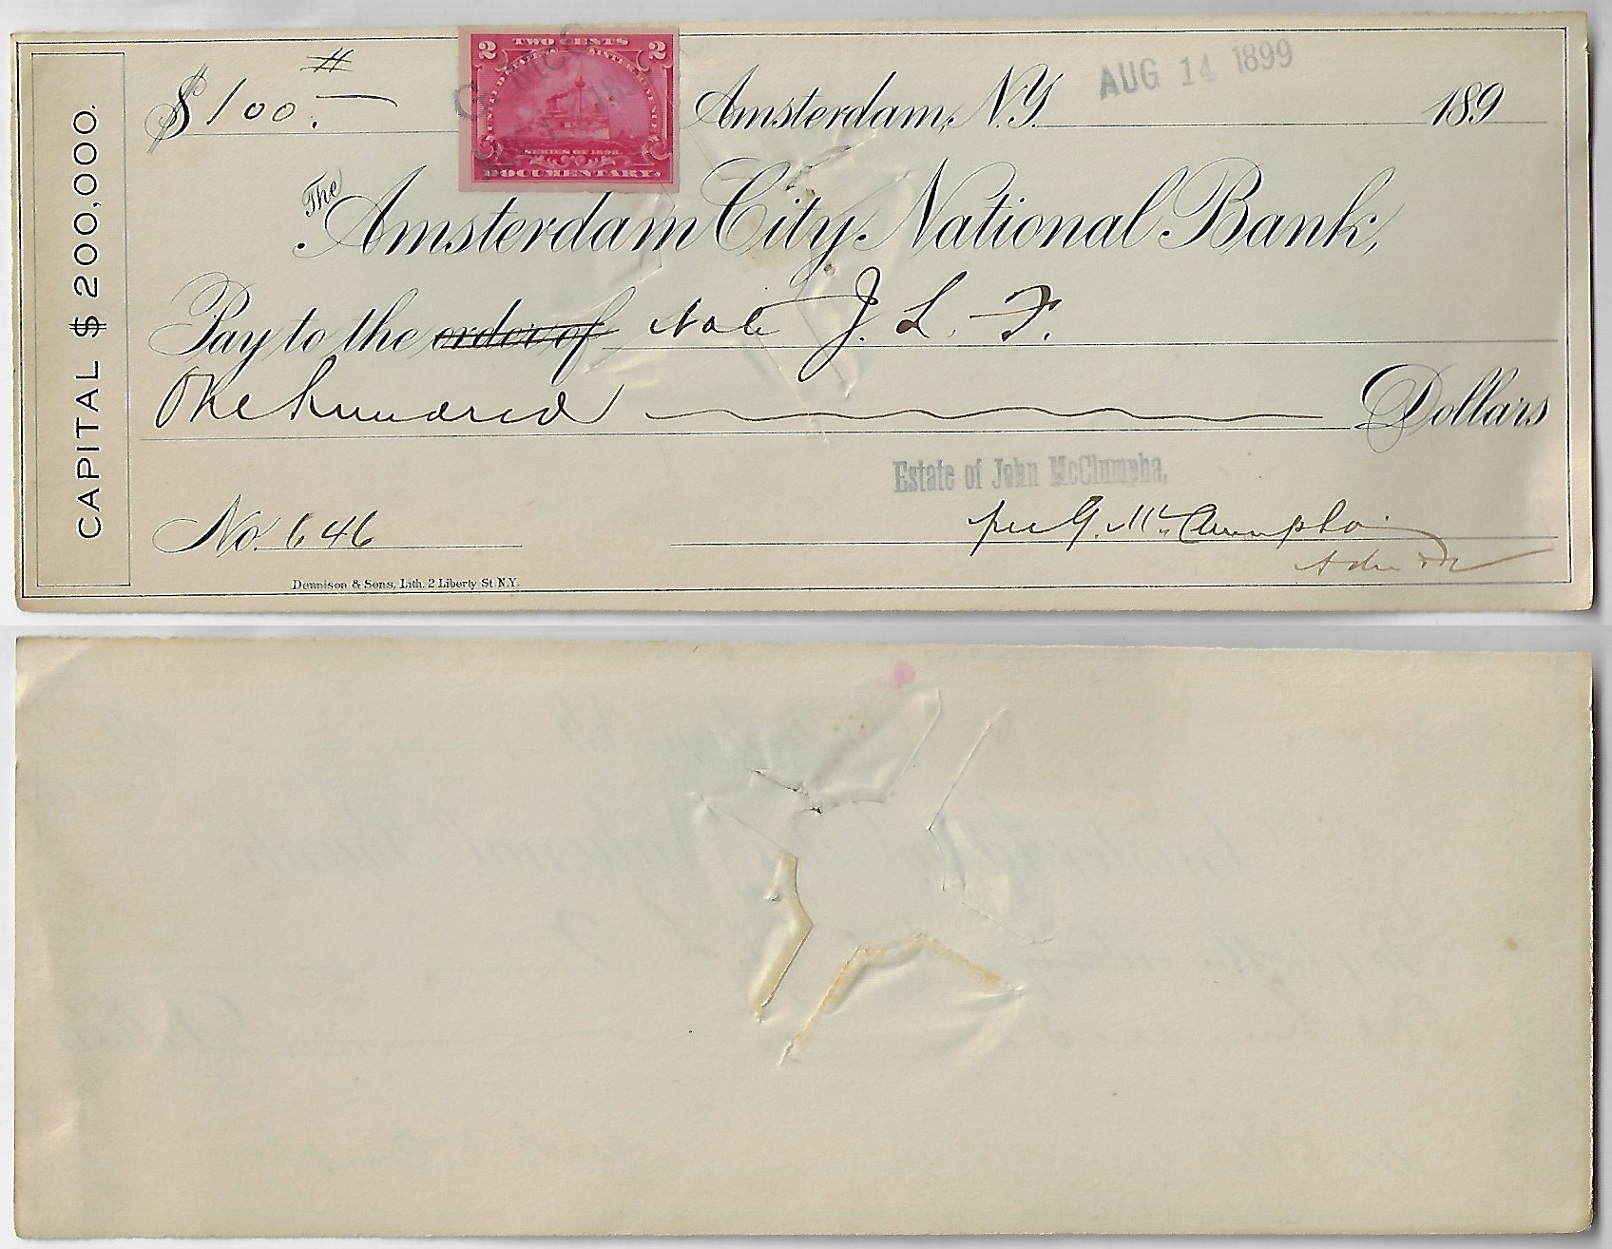 CAPITAL $ 200,000.
#
$ 100.—
2 TWO CENTS 2
UNITED STATES INTERNAL REVENUE
SERIES OF 1898.
DOCUMENTARY.
G. McC
Amsterdam, N.Y. AUG 14 1899 189
The Amsterdam City National Bank,
Pay to the order of Note J. L. F.
One hundred Dollars
Estate of John McClumpha,
No. 646 per G. McClumpha
Dennison & Sons, Lith. 2 Liberty St. N.Y.